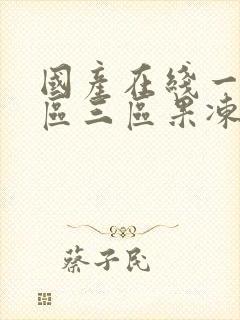 國產在綫一
區三區果凍
蔡子民